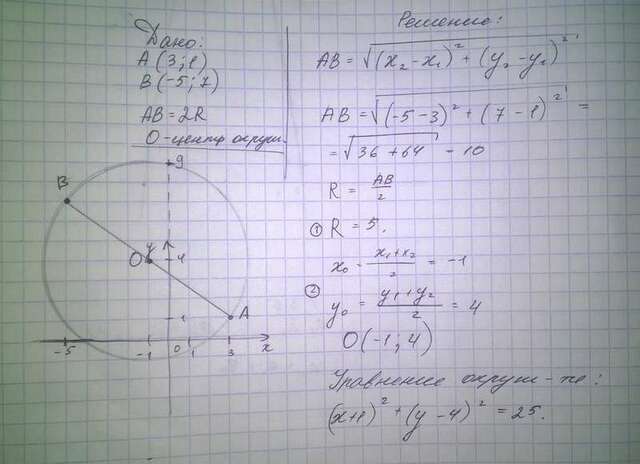 Дано:
A (3; 1)
B (-5; 7)
AB = 2R
O-центр окруж.
Решение:
AB = √((x₂ - x₁)² + (y₂ - y₁)²)
AB = √((-5 - 3)² + (7 - 1)²) =
= √(36 + 64) - 10
R = AB/2
① R = 5.
x₀ - (x₁ + x₂)/2 = -1
② y₀ = (y₁ + y₂)/2 = 4
O(-1; 4)
Уравнение окруж-ти:
(x+1)² + (y - 4)² = 25.
9
B
O
4
1
A
-5
-1
0
1
3
x